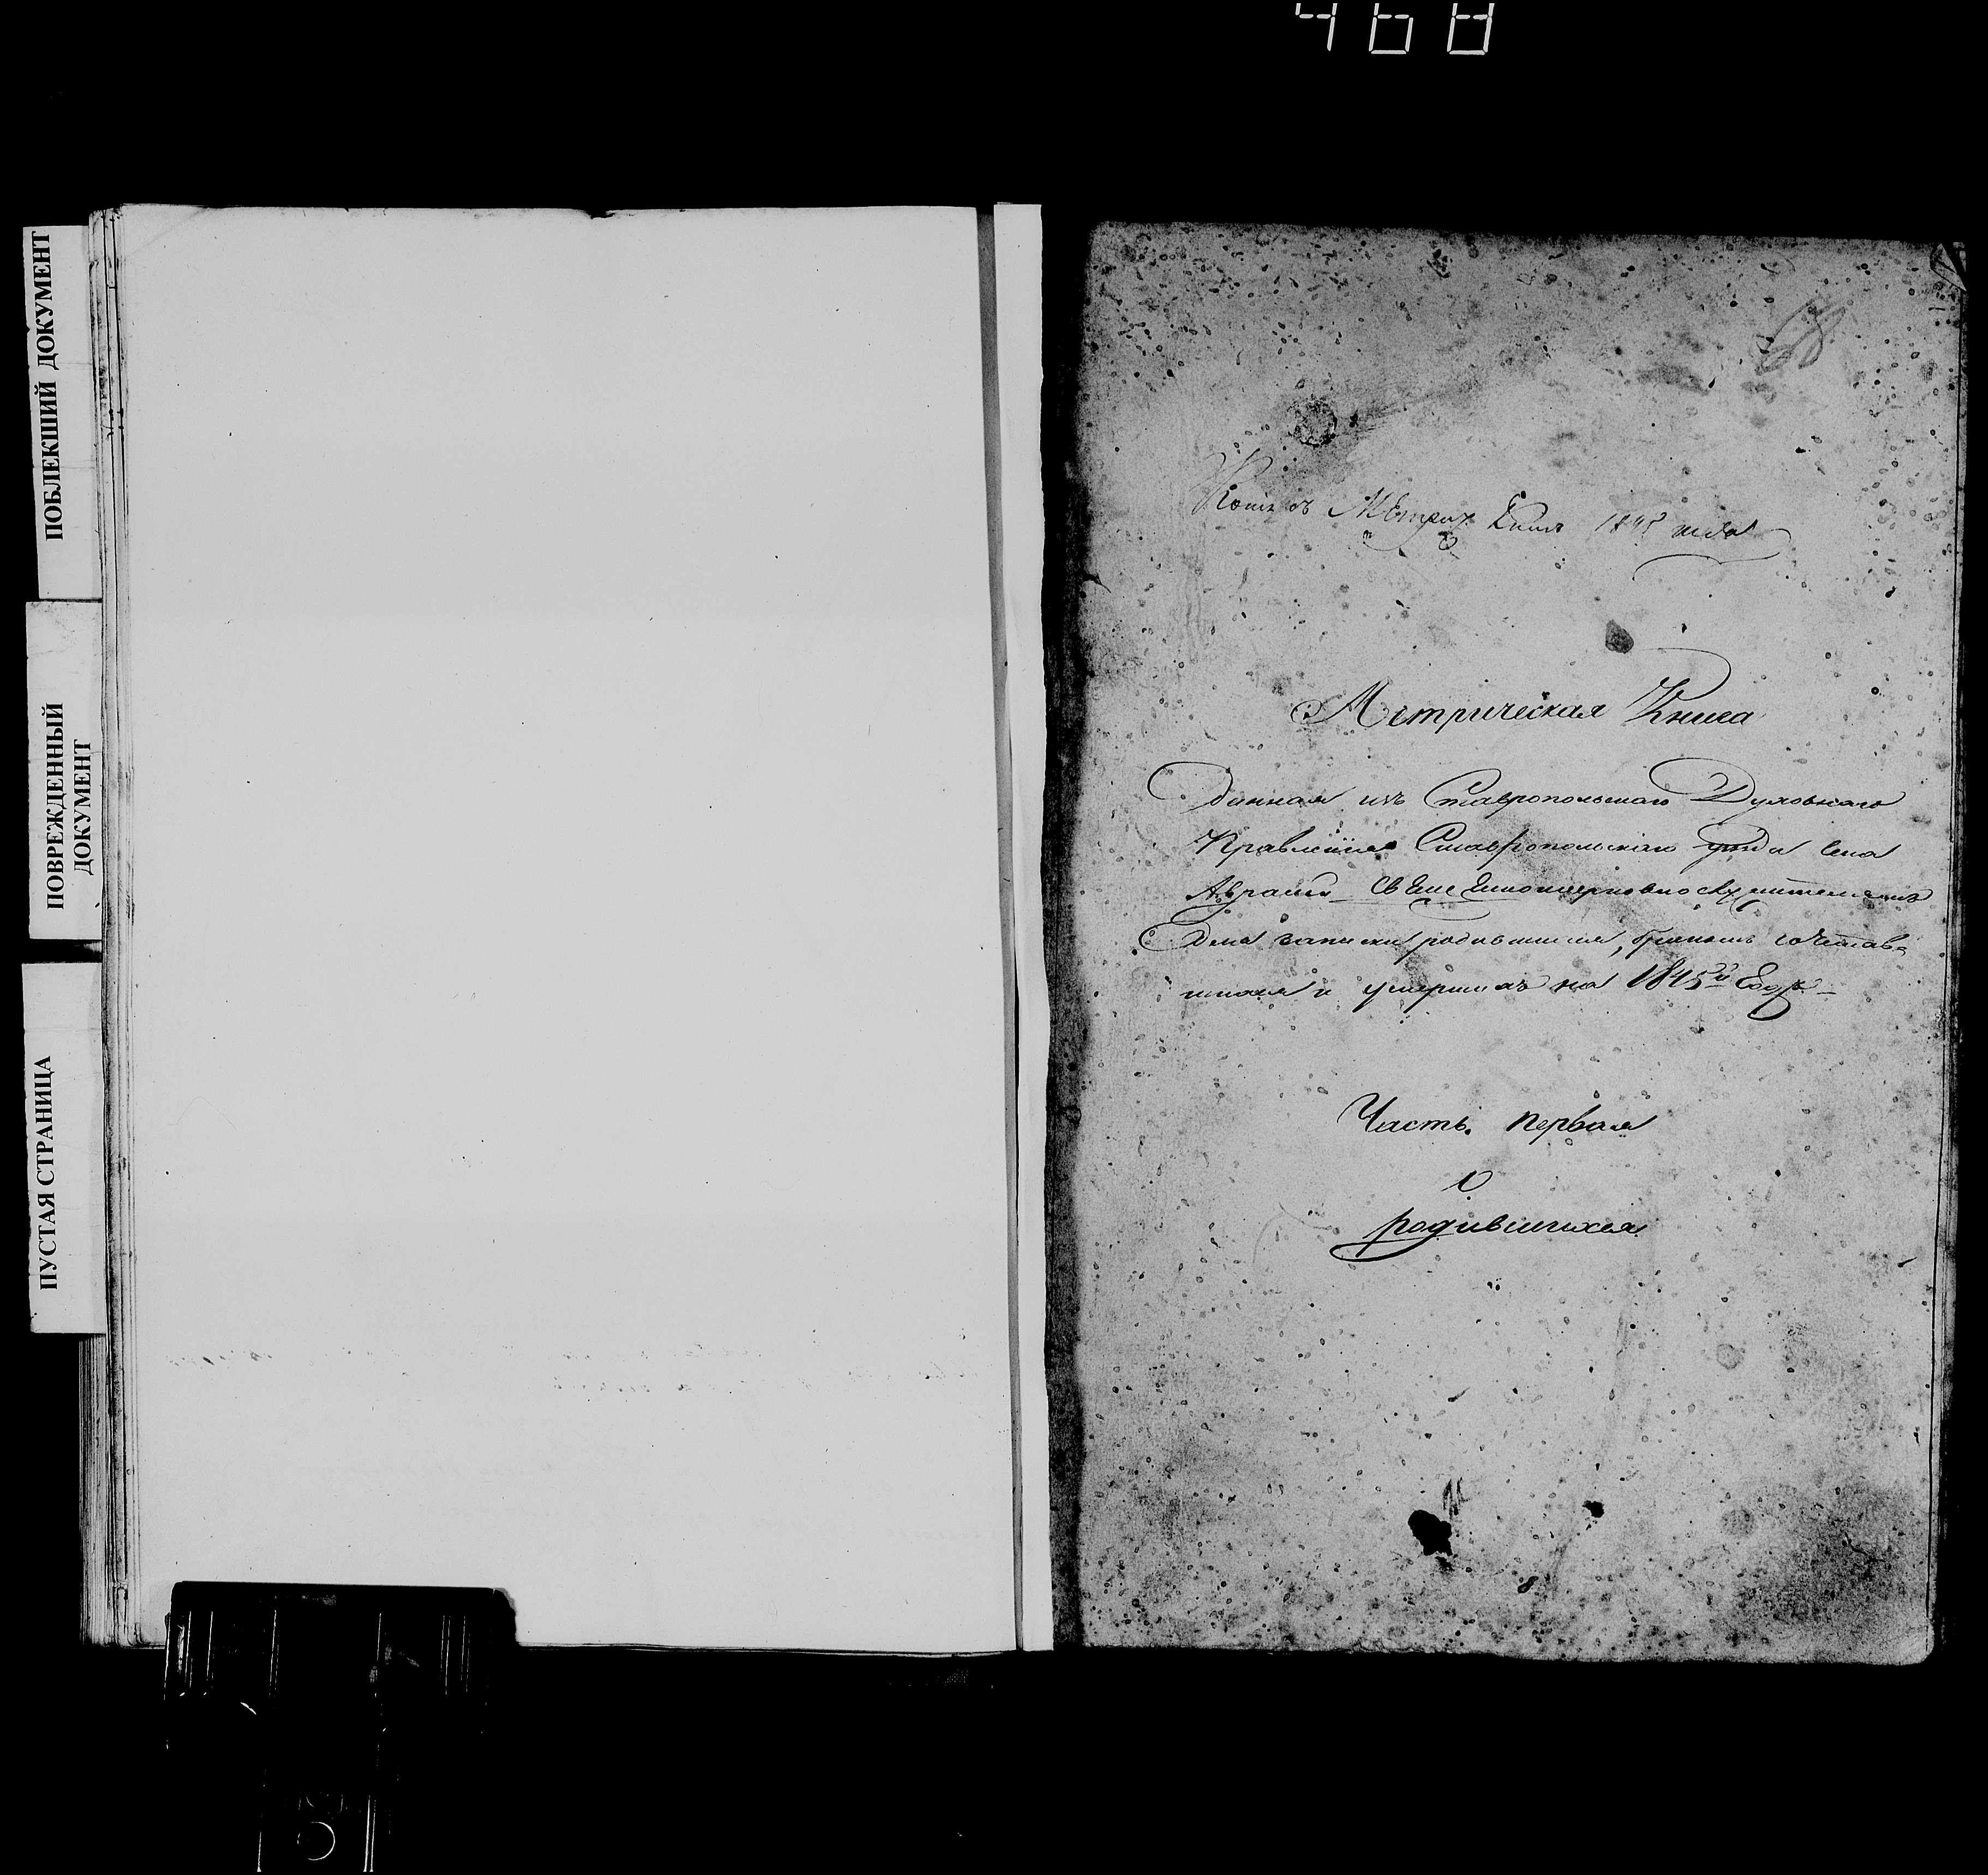 468
ПОБЛЕКШИЙ ДОКУМЕНТ
ПОВРЕЖДЕННЫЙ
ДОКУМЕНТ
ПУСТАЯ СТРАНИЦА
Копiя съ Метрич Книг 1845 года
Метрическая Книга
Данная изъ Ставропольскаго Духовнаго
Правленiя Ставропольскаго уезда Села
священноцерковнослужителямъ
Для записки родившихся, бракомъ сочетав=
шихся и умершихъ на 1845й Годъ
Часть первая
о
родившихся